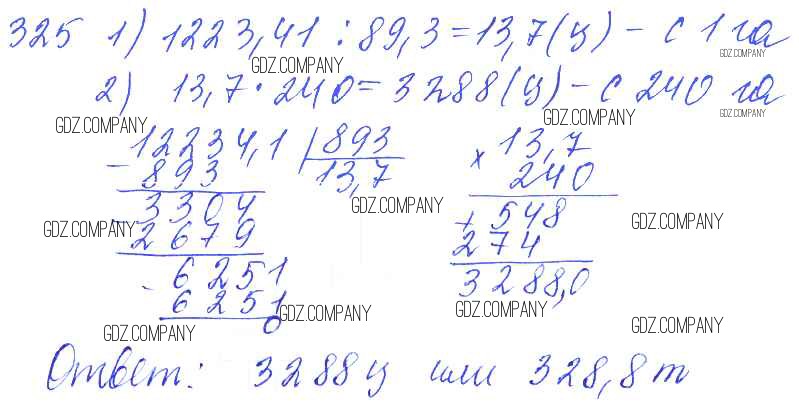 325 1) 1223,41 : 89,3 = 13,7 (ц) – с 1 га
GDZ.COMPANY GDZ.COMPANY
2) 13,7 · 240 = 3288 (ц) – с 240 га
GDZ.COMPANY GDZ.COMPANY GDZ.COMPANY
12234,1 | 893
– 893 13,7
3304
– 2679
6251
– 6251
0
× 13,7
240
+ 548
274
3288,0
GDZ.COMPANY GDZ.COMPANY GDZ.COMPANY
GDZ.COMPANY GDZ.COMPANY GDZ.COMPANY GDZ.COMPANY
Ответ: 3288 ц или 328,8 т